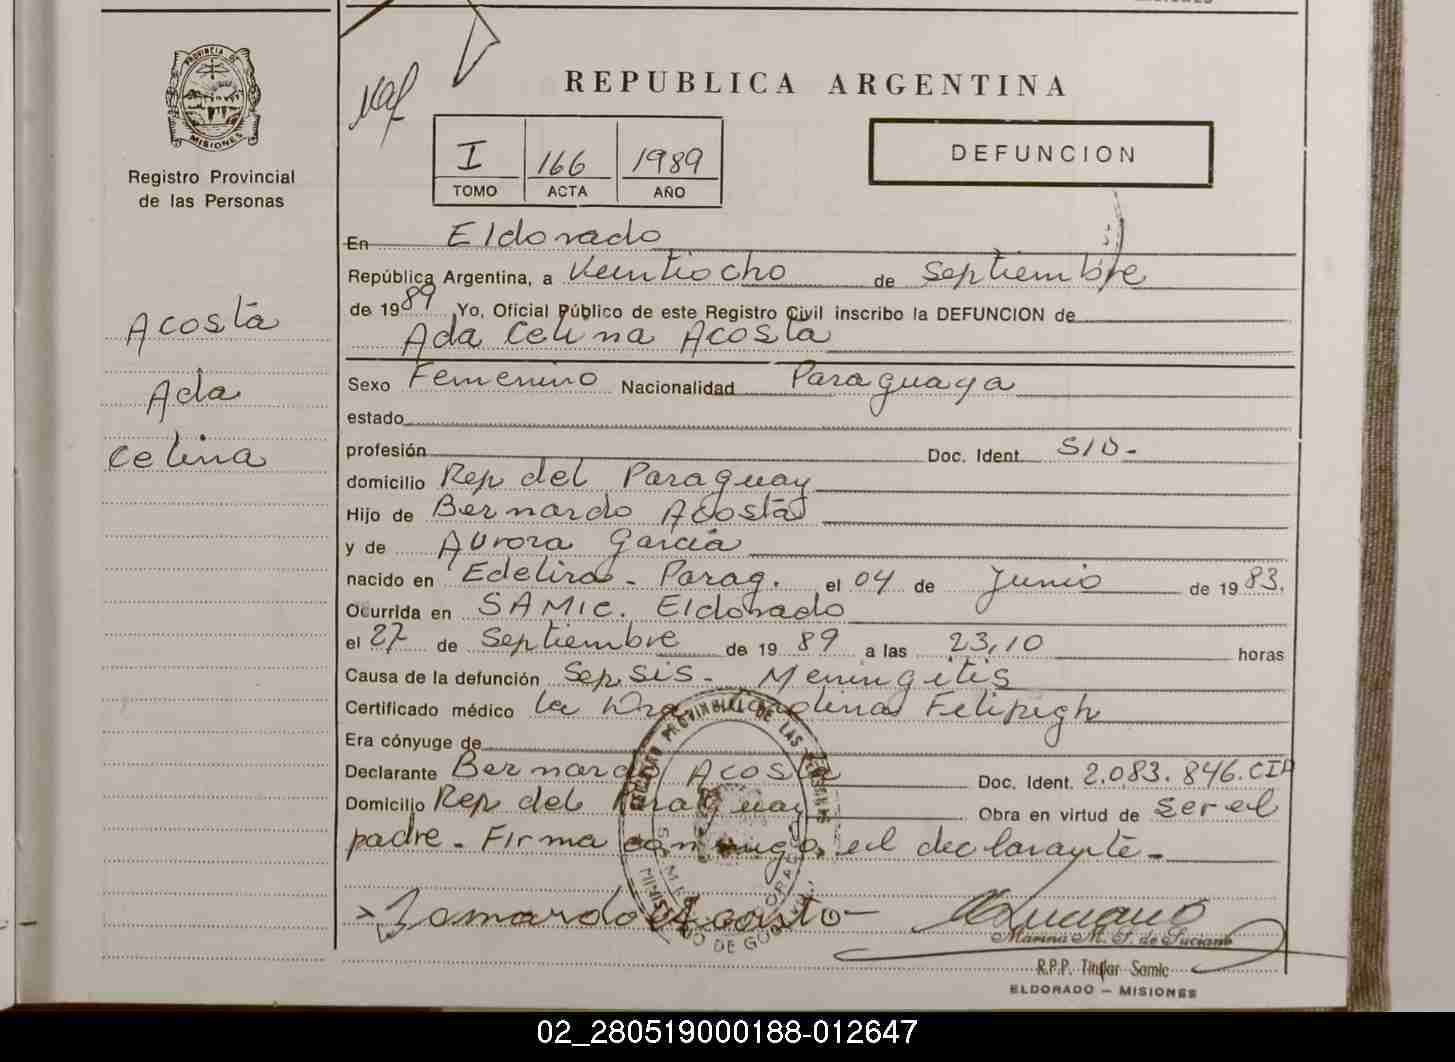 PROVINCIA DE
MISIONES
Registro Provincial
de las Personas
Acosta
Ada
Celina
REPUBLICA ARGENTINA
I 166 1989
TOMO ACTA AÑO
DEFUNCION
En Eldorado
República Argentina, a Veintiocho de Septiembre
de 1989 Yo, Oficial Público de este Registro Civil inscribo la DEFUNCION de
Ada Celina Acosta
Sexo Femenino Nacionalidad Paraguaya
estado
profesión Doc. Ident. S/D-
domicilio Rep del Paraguay
Hijo de Bernardo Acosta
y de Aurora Garcia
nacido en Edelira - Parag. el 04 de Junio de 1983.
Ocurrida en SAMIC. Eldorado
el 27 de Septiembre de 1989 a las 23,10 horas
Causa de la defunción Sepsis - Meningitis
Certificado médico la Dra
Era cónyuge de
Declarante Bernardo Acosta Doc. Ident. 2.083.846.CIP
Domicilio Rep del Paraguay Obra en virtud de ser el
padre - Firma conmigo, el declarante -
REGISTRO PROVINCIAL DE LAS PERSONAS
Marina M. S. de Luciano
R.P.P. Titular Samic
ELDORADO - MISIONES
02_280519000188-012647